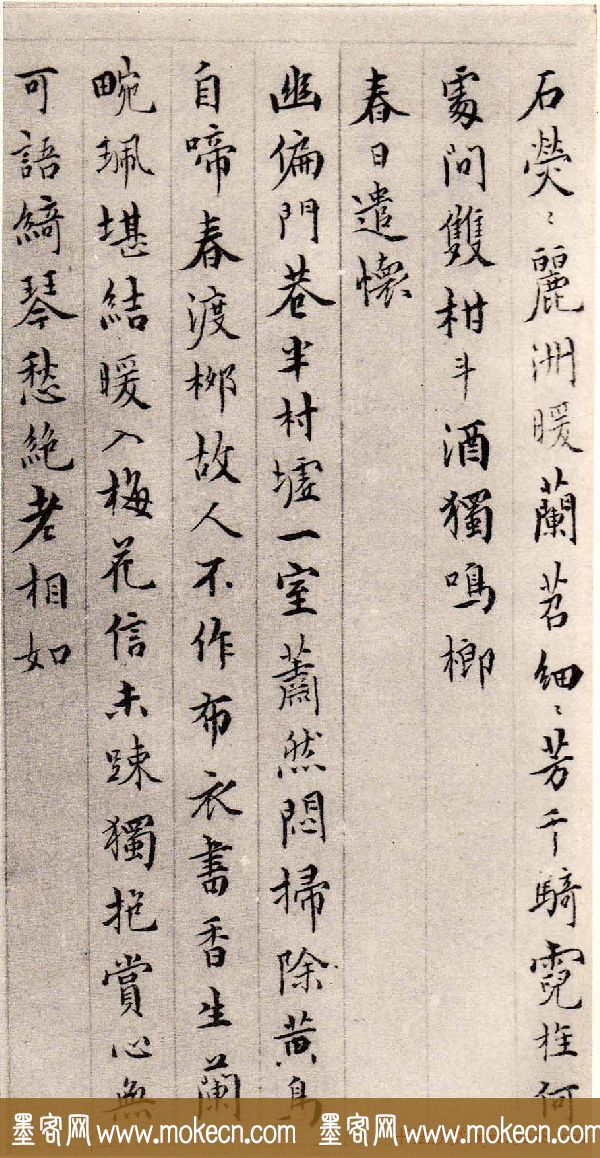 石熒〻麗洲暖蘭苕細〻芳千騎霓旌何
處問雙柑斗酒獨鳴榔
春日遣懷
幽偏門巷半村墟一室蕭然悶掃除黃鳥
自啼春渡柳故人不作布衣書香生蘭
畹珮堪結暖入梅花信未踈獨抱賞心無
可語綺琴愁絕老相如
墨客网 www.mokecn.com 墨客网 www.mokecn.com